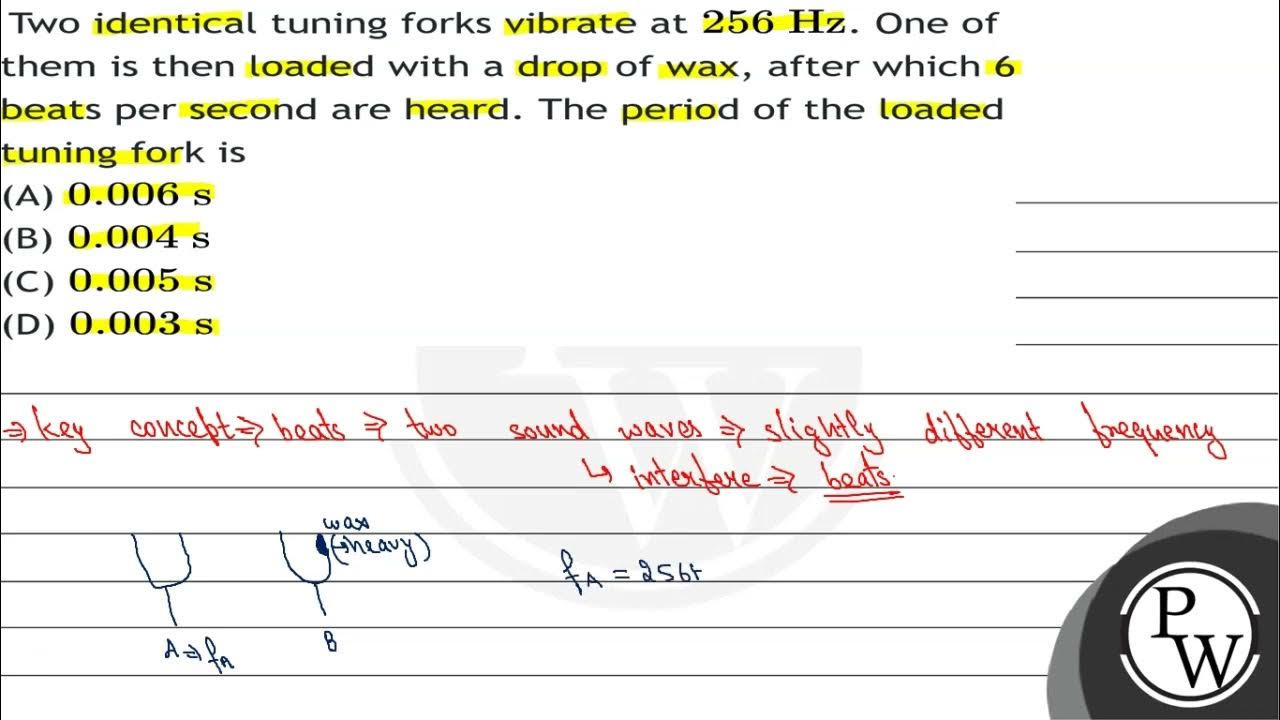 Two identical tuning forks vibrate at 256 Hz. One of
them is then loaded with a drop of wax, after which 6
beats per second are heard. The period of the loaded
tuning fork is
(A) 0.006 s
(B) 0.004 s
(C) 0.005 s
(D) 0.003 s
⇒ Key concept ⇒ beats ⇒ two sound waves ⇒ slightly different frequency
↳ interfere ⇒ beats.
wax
(→heavy)
f_A = 256
A ⇒ f_A
B
P
W